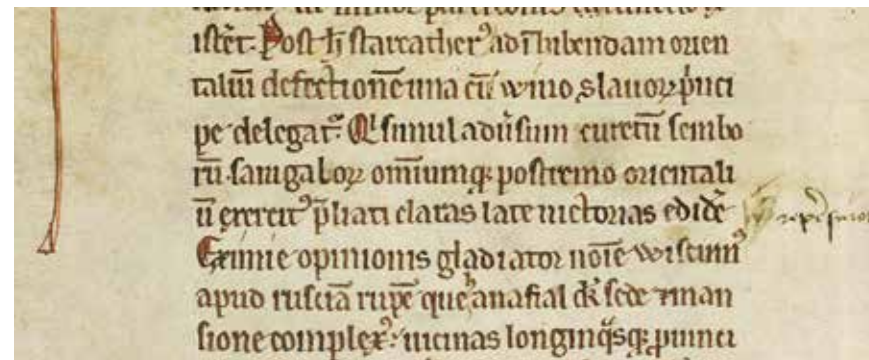 istēt. Post h̄ starcather⁹ ad īhibendam orien
taliū defectionē una cū wino slauoꝝ p̄nci
pe delegat᷑. Qͥ simul adūsum curetū sembo
rū sangaloꝝ omīumqꝫ postremo orientali
ū exercit⁹ p̄liati claras late uictorias edidē
Eximie opinionis gladiator noīe wisinn⁹
apud rusciā rupē que anafial dr̄ sede ⁊ man
sione complex⁹. uicinas longinqͣsqꝫ puinci